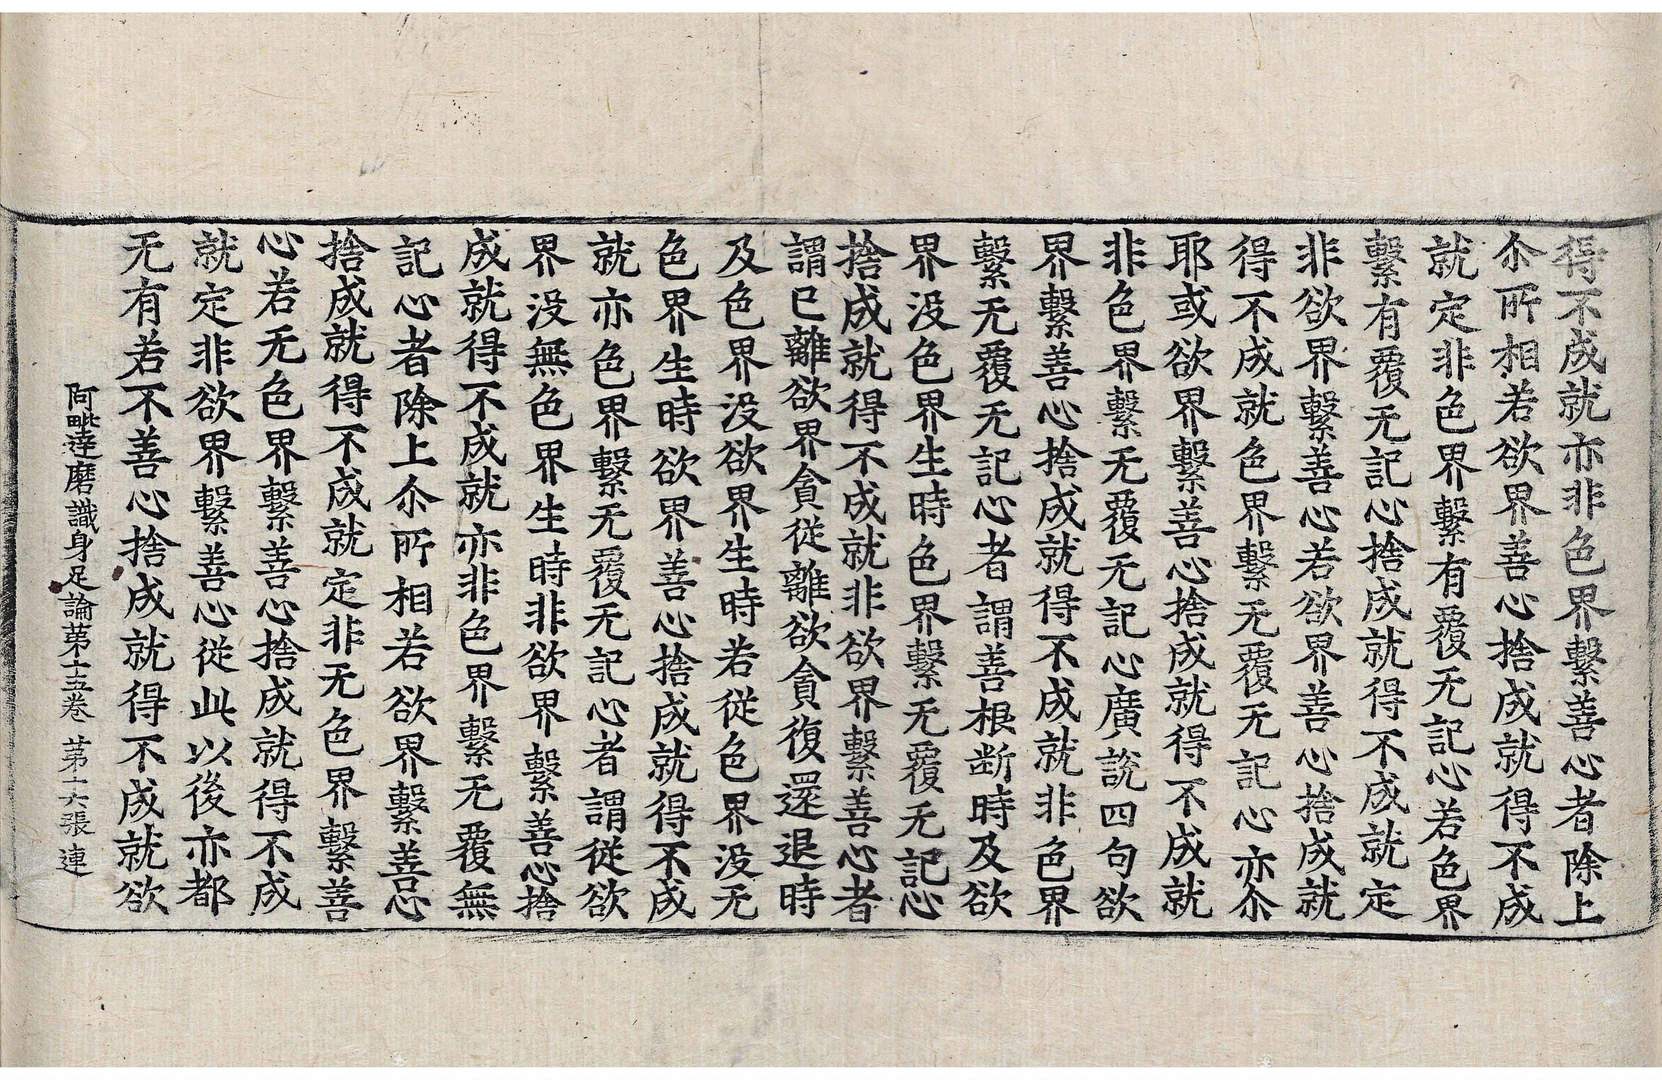 得不成就亦非色界繫善心者除上
尒所相若欲界善心捨成就得不成
就定非色界繫有覆无記心若色界
繫有覆无記心捨成就得不成就定
非欲界繫善心若欲界善心捨成就
得不成就色界繫无覆无記心亦尒
耶或欲界繫善心捨成就得不成就
非色界繫无覆无記心廣說四句欲
界繫善心捨成就得不成就非色界
繫无覆无記心者謂善根断時及欲
界没色界生時色界繫无覆无記心
捨成就得不成就非欲界繫善心者
謂已離欲界貪從離欲貪復還退時
及色界没欲界生時若從色界没无
色界生時欲界善心捨成就得不成
就亦色界繫无覆无記心者謂從欲
界没無色界生時非欲界繫善心捨
成就得不成就亦非色界繫无覆無
記心者除上尒所相若欲界繫善心
捨成就得不成就定非无色界繫善
心若无色界繫善心捨成就得不成
就定非欲界繫善心從此以後亦都
无有若不善心捨成就得不成就欲
阿毗達磨識身足論第十五卷 第十六張 連